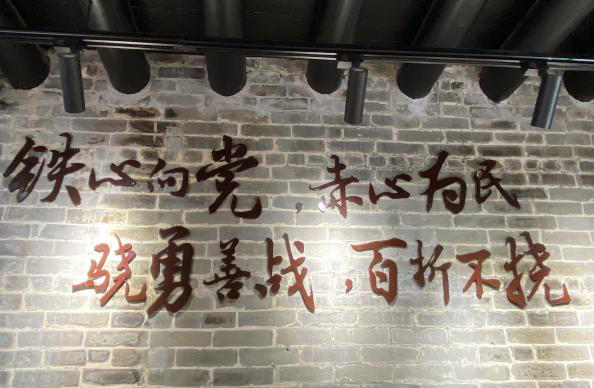 铁心向党，赤心为民
骁勇善战，百折不挠